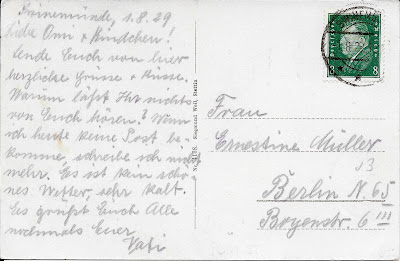 Swinemünde, 1.8.29
Liebe Omi + Kindchen!
Sende Euch von hier
herzliche Grüsse + Küsse.
Warum laßt Ihr nichts
von Euch hören? Wenn
ich heute keine Post be-
komme, schreibe ich nicht
mehr. Es ist kein schö-
nes Wetter, sehr kalt.
Es grüßt Euch Alle
nochmals Euer
Vati
Siegmund Weil, Berlin
DEUTSCHES REICH
8 8
Frau
Ernestine Müller
Berlin N 65
Boyenstr. 6 III